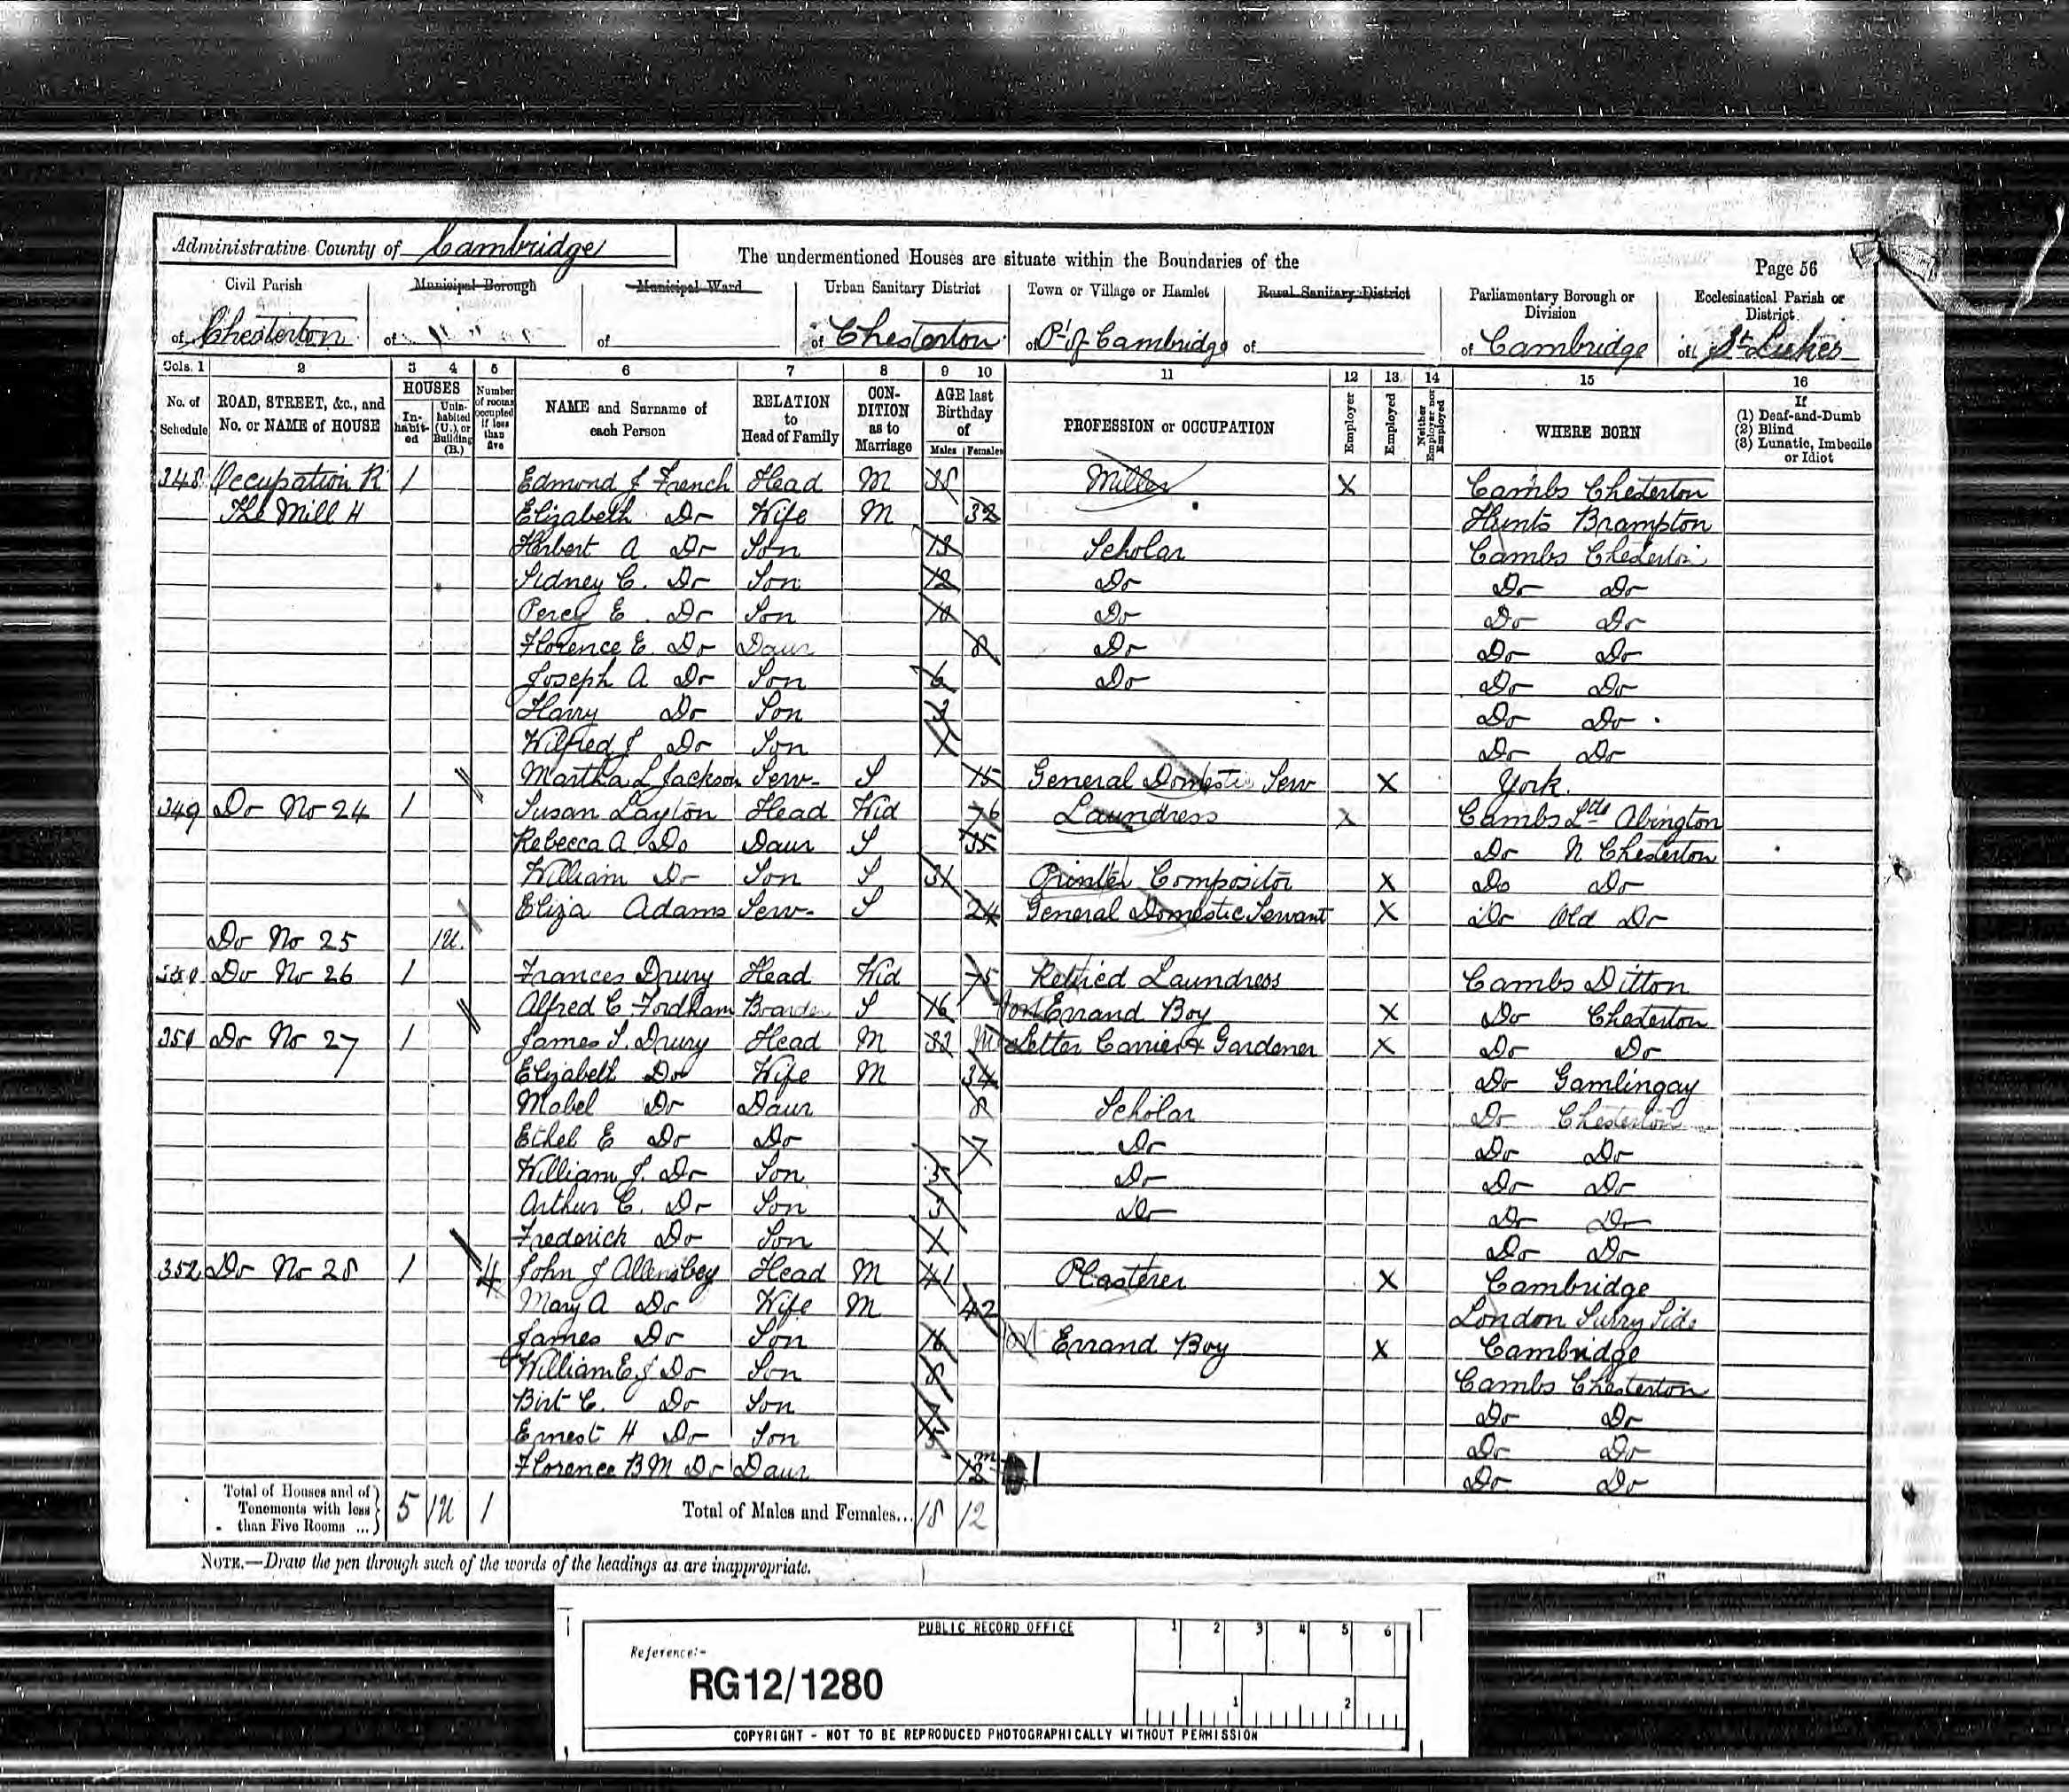 Administrative County of Cambridge
The undermentioned Houses are situate within the Boundaries of the
Page 56
Civil Parish
Municipal Borough
Municipal Ward
Urban Sanitary District
Town or Village or Hamlet
Rural Sanitary District
Parliamentary Borough or Division
Ecclesiastical Parish or District
of Chesterton of of of Chesterton of Pt of Cambridge of of Cambridge of St Lukes
Cols. 1 2 3 4 5 6 7 8 9 10 11 12 13 14 15 16
No. of Schedule
ROAD, STREET, &c., and No. or NAME of HOUSE
HOUSES
In-habit-ed
Unin-habited (U.), or Building (B.)
Number of rooms occupied if less than five
NAME and Surname of each Person
RELATION to Head of Family
CON-DITION as to Marriage
AGE last Birthday of
Males Females
PROFESSION or OCCUPATION
Employer
Employed
Neither Employer nor Employed
WHERE BORN
If
(1) Deaf-and-Dumb
(2) Blind
(3) Lunatic, Imbecile or Idiot
348 Occupation R 1 Edmond J French Head M 38 Miller X Cambs Chesterton
The Mill H Elizabeth Do Wife M 32 Hunts Brampton
Herbert A Do Son 13 Scholar Cambs Chesterton
Sidney C. Do Son 12 Do Do Do
Percy E. Do Son 10 Do Do Do
Florence E. Do Daur 8 Do Do Do
Joseph A Do Son 6 Do Do Do
Harry Do Son 3 Do Do
Wilfred J Do Son 1 Do Do
Martha L Jackson Serv- S 15 General Domestic Serv X York
349 Do No 24 1 Susan Layton Head Wid 76 Laundress X Cambs Abington
Rebecca A Do Daur S 35 Do N Chesterton
William Do Son S 31 Printer Compositor X Do Do
Eliza Adams Serv- S 24 General Domestic Servant X Do Old Do
Do No 25 1U.
350 Do No 26 1 Frances Drury Head Wid 75 Retired Laundress Cambs Ditton
Alfred C. Fordham Boarder S 16 Errand Boy X Do Chesterton
351 Do No 27 1 James S. Drury Head M 32 Letter Carrier & Gardener X Do Do
Elizabeth Do Wife M 34 Do Gamlingay
Mabel Do Daur 8 Scholar Do Chesterton
Ethel E Do Do 7 Do Do Do
William J. Do Son 5 Do Do Do
Arthur C. Do Son 3 Do Do Do
Frederick Do Son 1 Do Do
352 Do No 28 1 4 John J Allensbey Head M 41 Plasterer X Cambridge
Mary A Do Wife M 42 London Surry Side
James Do Son 16 Errand Boy X Cambridge
William E J Do Son 8 Cambs Chesterton
Birt C. Do Son 7 Do Do
Ernest H Do Son 5 Do Do
Florence B M Do Daur Do Do
Total of Houses and of Tenements with less than Five Rooms ... 5 1U 1 Total of Males and Females... 18 12
NOTE.—Draw the pen through such of the words of the headings as are inappropriate.
PUBLIC RECORD OFFICE
1 2 3 4 5 6
Reference:-
RG12/1280
1 2
COPYRIGHT - NOT TO BE REPRODUCED PHOTOGRAPHICALLY WITHOUT PERMISSION